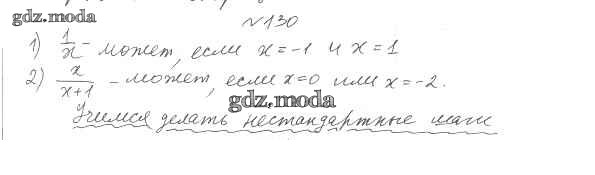 gdz.moda
№130
1) 1/x - может, если x = -1 и x = 1
2) x/x+1 - может, если x=0 или x = -2.
gdz.moda
Учимся делать нестандартные шаги